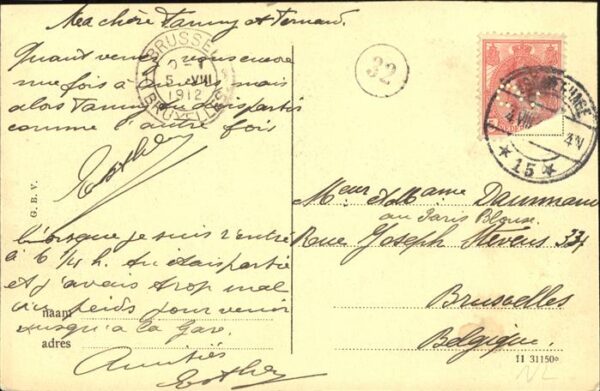 Ma chère Fanny et Fernand.
Quand venez vous encore
une fois à mais
alors Fanny
comme l'autre fois
Esther
Lorsque je suis rentré
à 6 1/4 h.
et j'avais trop mal
aux pieds pour venir
jusqu'à la Gare.
Amitiés
Esther
naam
adres
G. B. V.
BRUSSEL
5 VIII
1912
BRUXELLES
32
4 VIII
4 N
15
Meur et Mame
au Paris Blouse.
Rue Joseph Stevens 33
Bruxelles
Belgique.
11 31150
NL